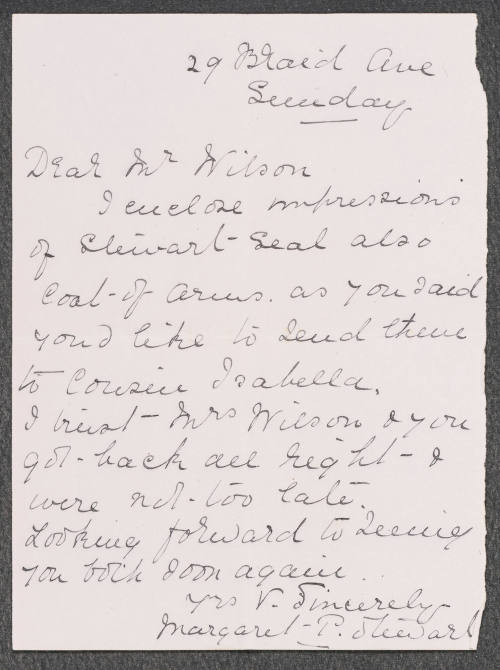 29 Braid Ave
Sunday
Dear Mr Wilson
I enclose impressions
of Stewart Seal also
Coat-of Arms. as you said
you'd like to send them
to Cousin Isabella.
I trust Mrs Wilson & you
got back all right &
were not too late.
Looking forward to seeing
you both soon again.
yrs V. Sincerely
Margaret P. Stewart